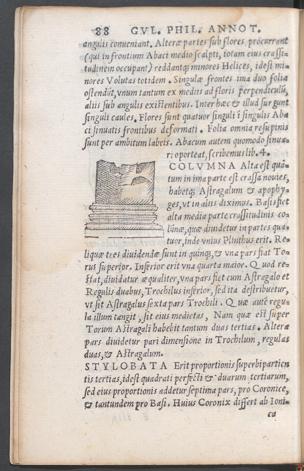 88 GVL. PHIL. ANNOT.
angulis conueniant. Alteræ partes sub flores procurrant
(qui in frontium Abaci medio scalpti, totam eius crassi-
tudinem occupant) reddantq; minores Helices, idest mi-
nores Volutas totidem. Singulæ frontes ima duo folia
ostendūt, vnum tantum ex medijs ad floris perpendiculū,
alijs sub angulis existentibus. Inter hæc & illud surgunt
singuli caules. Flores sunt quatuor singuli ī singulis Aba
ci sinuatis frontibus deformati. Folia omnia resupinis
sunt per ambitum labris. Abacum autem quomodo sinua-
ri oporteat, scribemus lib. 4.
COLVMNA Alta est quā-
tum in ima parte est crassa nouies,
habetq; Astragalum & apophy-
ges, vt in alijs diximus. Basis fiet
alta media parte crassitudinis co-
lūnæ, quæ diuidetur in partes qua-
tuor, inde vnius Plinthus erit. Re-
liquæ tres diuidendæ sunt in quinq; & vna pars fiat To-
rus superior. Inferior erit vna quarta maior. Quod re-
stat, diuidatur æqualiter, vna pars fiet cum Astragalo et
Regulis duabus, Trochilus inferior, sed ita destribuetur,
vt sit Astragalus sexta pars Trochili. Quæ autē regu-
la illum tangit, sit eius medietas, Nam quæ est super
Torum Astragali habebit tantum duas tertias. Altera
pars diuidetur pari dimensione in Trochilum, regulas
duas, & Astragalum.
STYLOBATA Erit proportionis superbipartien
tis tertias, idest quadrati perfecti & duarum tertiarum,
sed eius proportionis addetur septima pars, pro Cornice,
& tantundem pro Basi. Huius Coronix differt ab Ioni-
ca